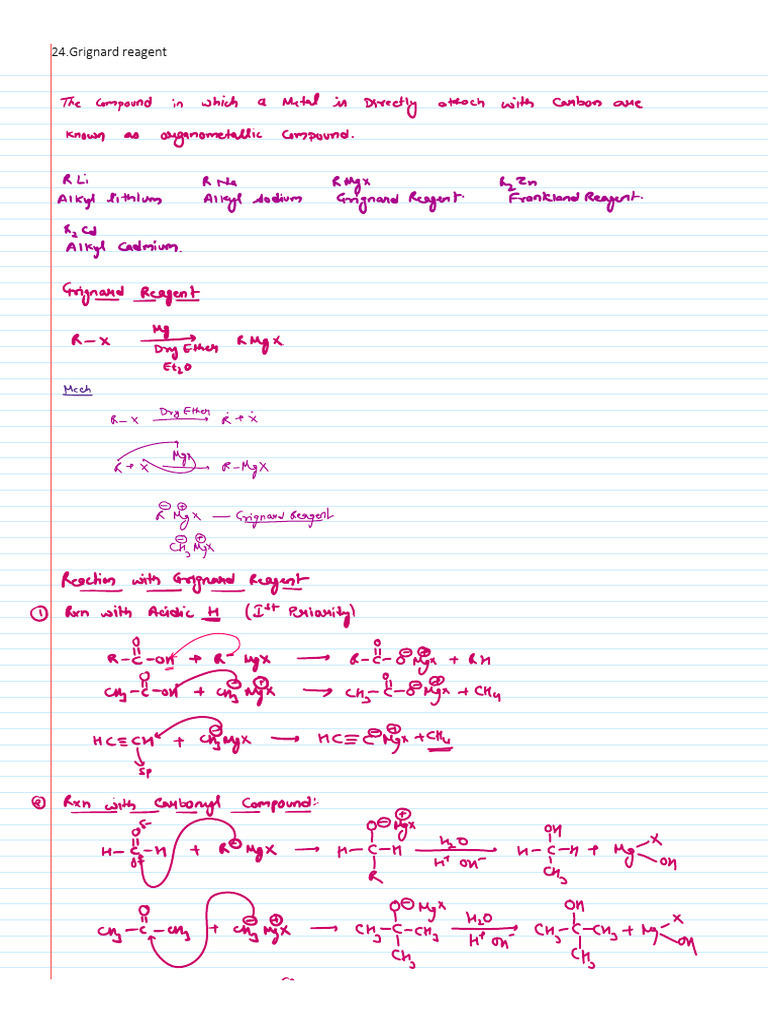 24.Grignard reagent
The Compound in which a Metal is Directly attach with Carbon are
known as organometallic Compound.
R Li R Na R Mg X R₂ Zn
Alkyl lithium Alkyl sodium Grignard Reagent. Frankland Reagent.
R₂ Cd
Alkyl Cadmium.
Grignard Reagent
R–X Mg Dry Ether Et₂O → R Mg X
Mech
R–X Dry Ether → Ṙ + Ẋ
Ṙ + Ẋ Mgx → R–MgX
R⊖ Mg⊕ X — Grignard Reagent
CH₃⊖ Mg⊕ X
Reaction with Grignard Reagent
① Rxn with Acidic H (Iˢᵗ Priority)
R–C(=O)–OH + R⁻ MgX → R–C(=O)–O⊖ Mg⊕x + RH
CH₃–C(=O)–OH + CH₃⊖ Mg⊕X → CH₃–C(=O)–O⊖ Mg⊕x + CH₄
HC≡CH + CH₃⊖MgX → HC≡C⊖ Mg⊕x + CH₄
sp
② Rxn with Carbonyl Compound:-
H–C(=O)–H δ- δ+ + R⊖ MgX → H–C(O⊖ Mg⊕x)(R)–H H₂O H⁺ OH⁻ → H–C(OH)(CH₃)–H + Mg X OH
CH₃–C(=O)–CH₃ + CH₃⊖ Mg⊕X → CH₃–C(O⊖ Mgx)(CH₃)–CH₃ H₂O H⁺ OH⁻ → CH₃–C(OH)(CH₃)–CH₃ + Mg X OH